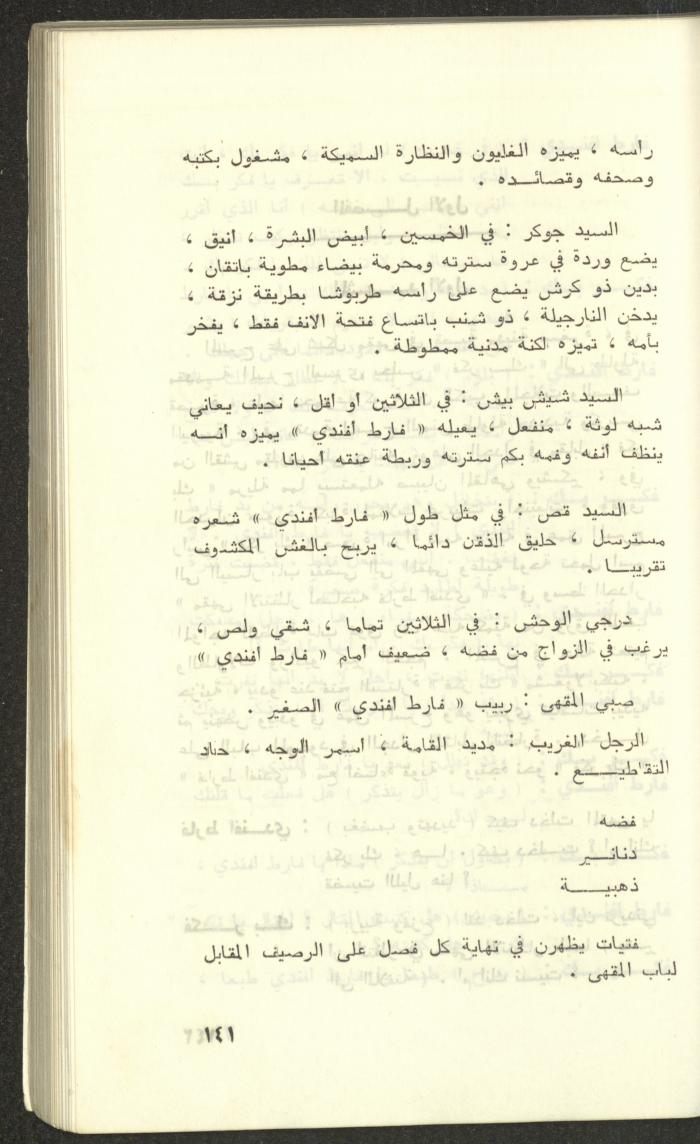 راسه ، يميزه الغليون والنظارة السميكة ، مشغول بكتبه
وصحفه وقصائــده .
السيد جوكر : في الخمسين ، ابيض البشرة ، انيق ،
يضع وردة في عروة سترته ومحرمة بيضاء مطوية باتقان ،
بدين ذو كرش يضع على راسه طربوشا بطريقة نزقة ،
يدخن النارجيلة ، ذو شنب باتساع فتحة الانف فقط ، يفخر
بأمه ، تميزه لكنة مدنية ممطوطة .
السيد شيش بيش : في الثلاثين او اقل ، نحيف يعاني
شبه لوثة ، منفعل ، يعيله « فارط افندي » يميزه انــه
ينظف انفه وفمه بكم سترته وربطة عنقه احيانا .
السيد قص : في مثل طول « فارط افندي » شعره
مسترسل ، حليق الذقن دائما ، يربح بالغش المكشوف
تقريبــا .
درجي الوحش : في الثلاثين تماما ، شقي ولص ،
يرغب في الزواج من فضه ، ضعيف امام « فارط افندي »
صبي المقهى : ربيب « فارط افندي » الصغير .
الرجل الغريب : مديد القامة ، اسمر الوجه ، حاد
التقاطيــــع .
فضه
دنانــير
ذهبيــــة
فتيات يظهرن في نهاية كل فصل على الرصيف المقابل
لباب المقهى .
١٤١